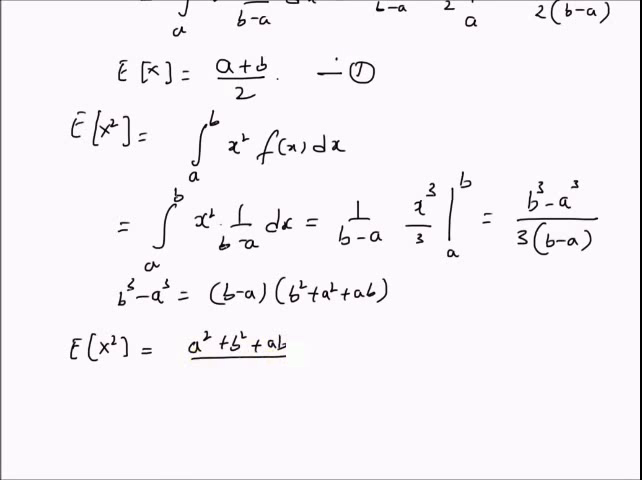 a b-a b-a 2 a 2(b-a)
E[x] = a+b/2. — ①
E[x²] = ∫ₐᵇ x² f(x) dx
= ∫ₐᵇ x² · 1/b-a dx = 1/b-a x³/3 |ₐᵇ = b³-a³/3(b-a)
b³-a³ = (b-a)(b²+a²+ab)
E[x²] = a²+b²+ab